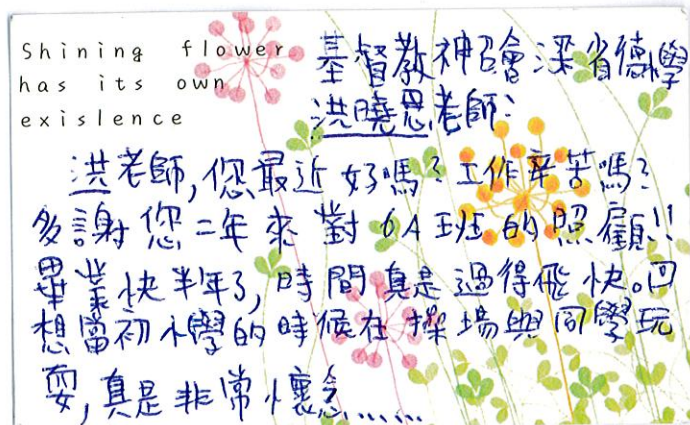 Shining flower
has its own
exislence
基督教神召會深省德學
洪曉恩老師：
洪老師,您最近好嗎?工作辛苦嗎?
多謝您二年來對6A班的照顧!!
畢業快半年了,時間真是過得飛快。回
想當初小學的時候在操場與同學玩
耍,真是非常懷念……